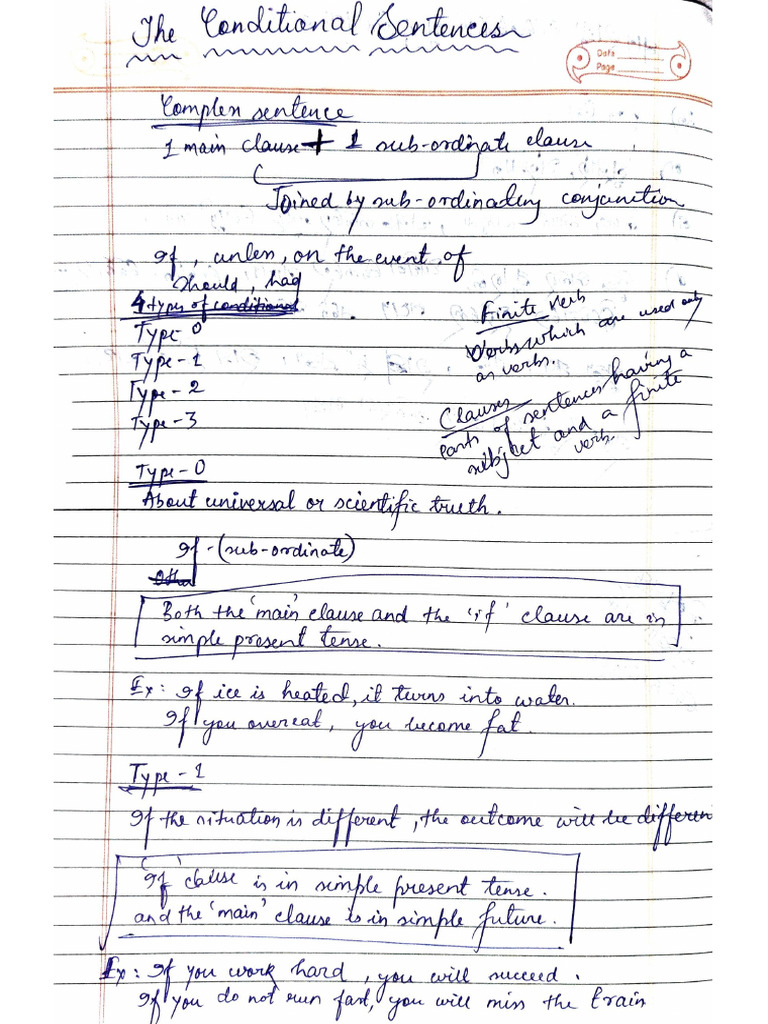 The Conditional Sentences
Date
Page
Complex sentence
1 main clause + 1 sub-ordinate clause
Joined by sub-ordinating conjunction
If, unless, on the event of
should, had
4 types of conditional
Type-0
Type-1
Type-2
Type-3
Finite Verb
Verbs which are used only
as verbs.
Clauses
parts of sentences having a
subject and a finite
verb.
Type-0
About universal or scientific truth.
If-(sub-ordinate)
Both the 'main' clause and the 'if' clause are in
simple present tense.
Ex: If ice is heated, it turns into water.
If you overeat, you become fat.
Type-1
If the situation is different, the outcome will be differen
'If' clause is in simple present tense.
and the 'main' clause is in simple future.
Ex: If you work hard, you will succeed.
If you do not run fast, you will miss the train